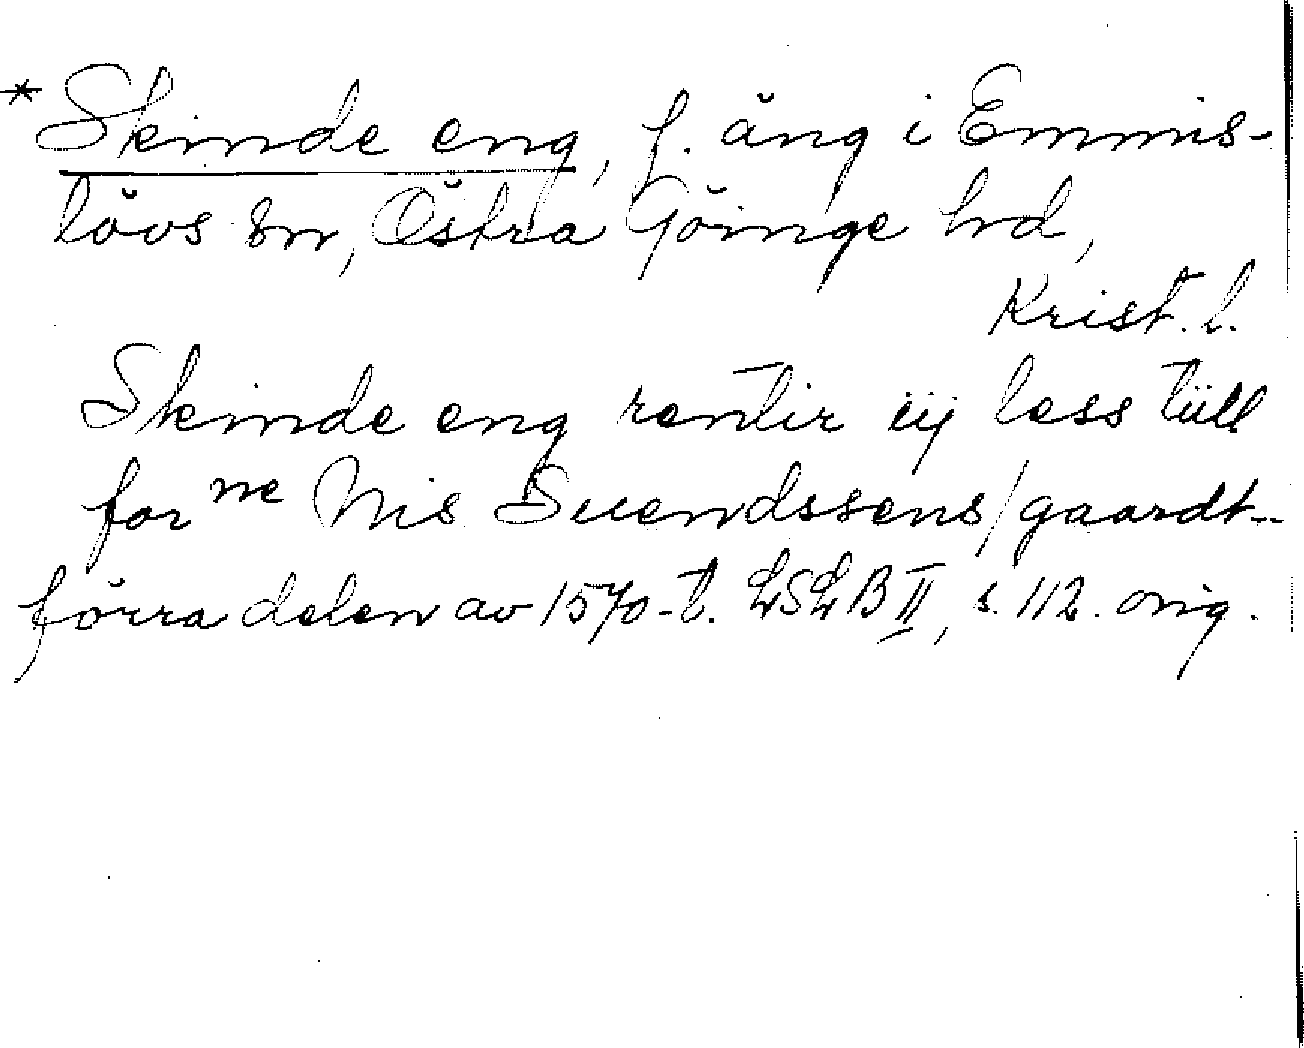 * Skinde eng, f. äng i Emmis-
lövs sn, Östra Göinge hd,
Krist. l.
Skinde eng rentir iij less tiill
for ne Nis Suendssens/gaardt..
förra delen av 1570-t. LSLB II, s. 112. orig.